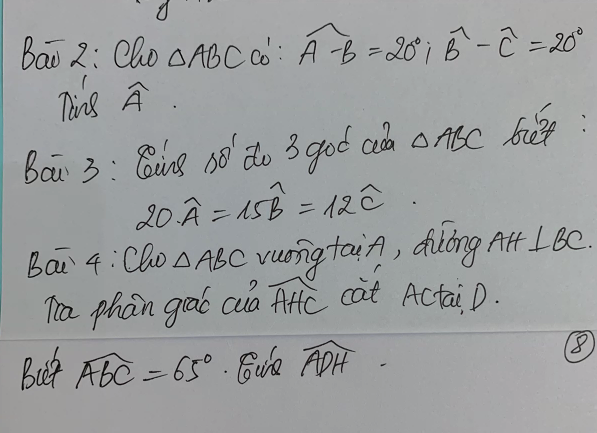 Bài 2: Cho △ABC có: Â - B = 20°; B̂ - Ĉ = 20°
Tính Â.
Bài 3: Tính số đo 3 góc của △ABC biết:
20.Â = 15B̂ = 12Ĉ.
Bài 4: Cho △ABC vuông tại A, đường AH ⊥ BC.
Tia phân giác của AHC cắt AC tại D.
Biết ABC = 65°. Tính ADH.
8